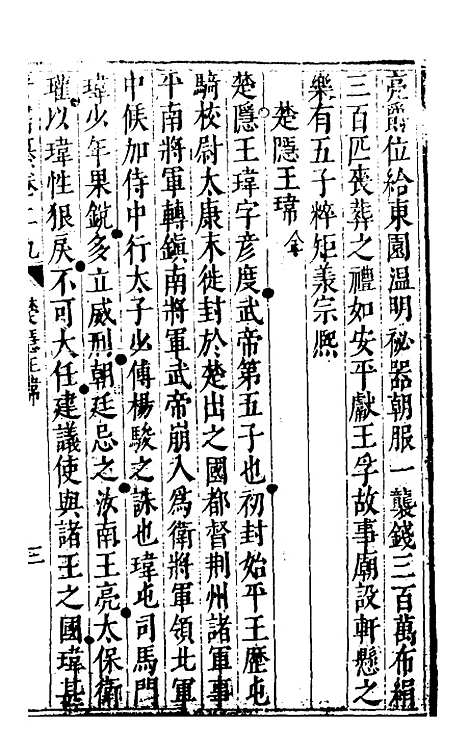 亮爵位給東園温明祕器朝服一襲錢三百萬布絹
三百匹喪葬之禮如安平獻王孚故事廟設軒懸之
樂有五子粹矩羕宗熈
楚隱王瑋
楚隱王瑋字彦度武帝第五子也初封始平王歷屯
騎校尉太康末徙封於楚出之國都督荆州諸軍事
平南將軍轉鎭南將軍武帝崩入爲衛將軍領北軍
中候加侍中行太子少傅楊駿之誅也瑋屯司馬門
瑋少年果銳多立威刑朝廷忌之汝南王亮太保衛
瓘以瑋性狠戾不可大任建議使與諸王之國瑋甚
卷二十九
楚隱王瑋
三